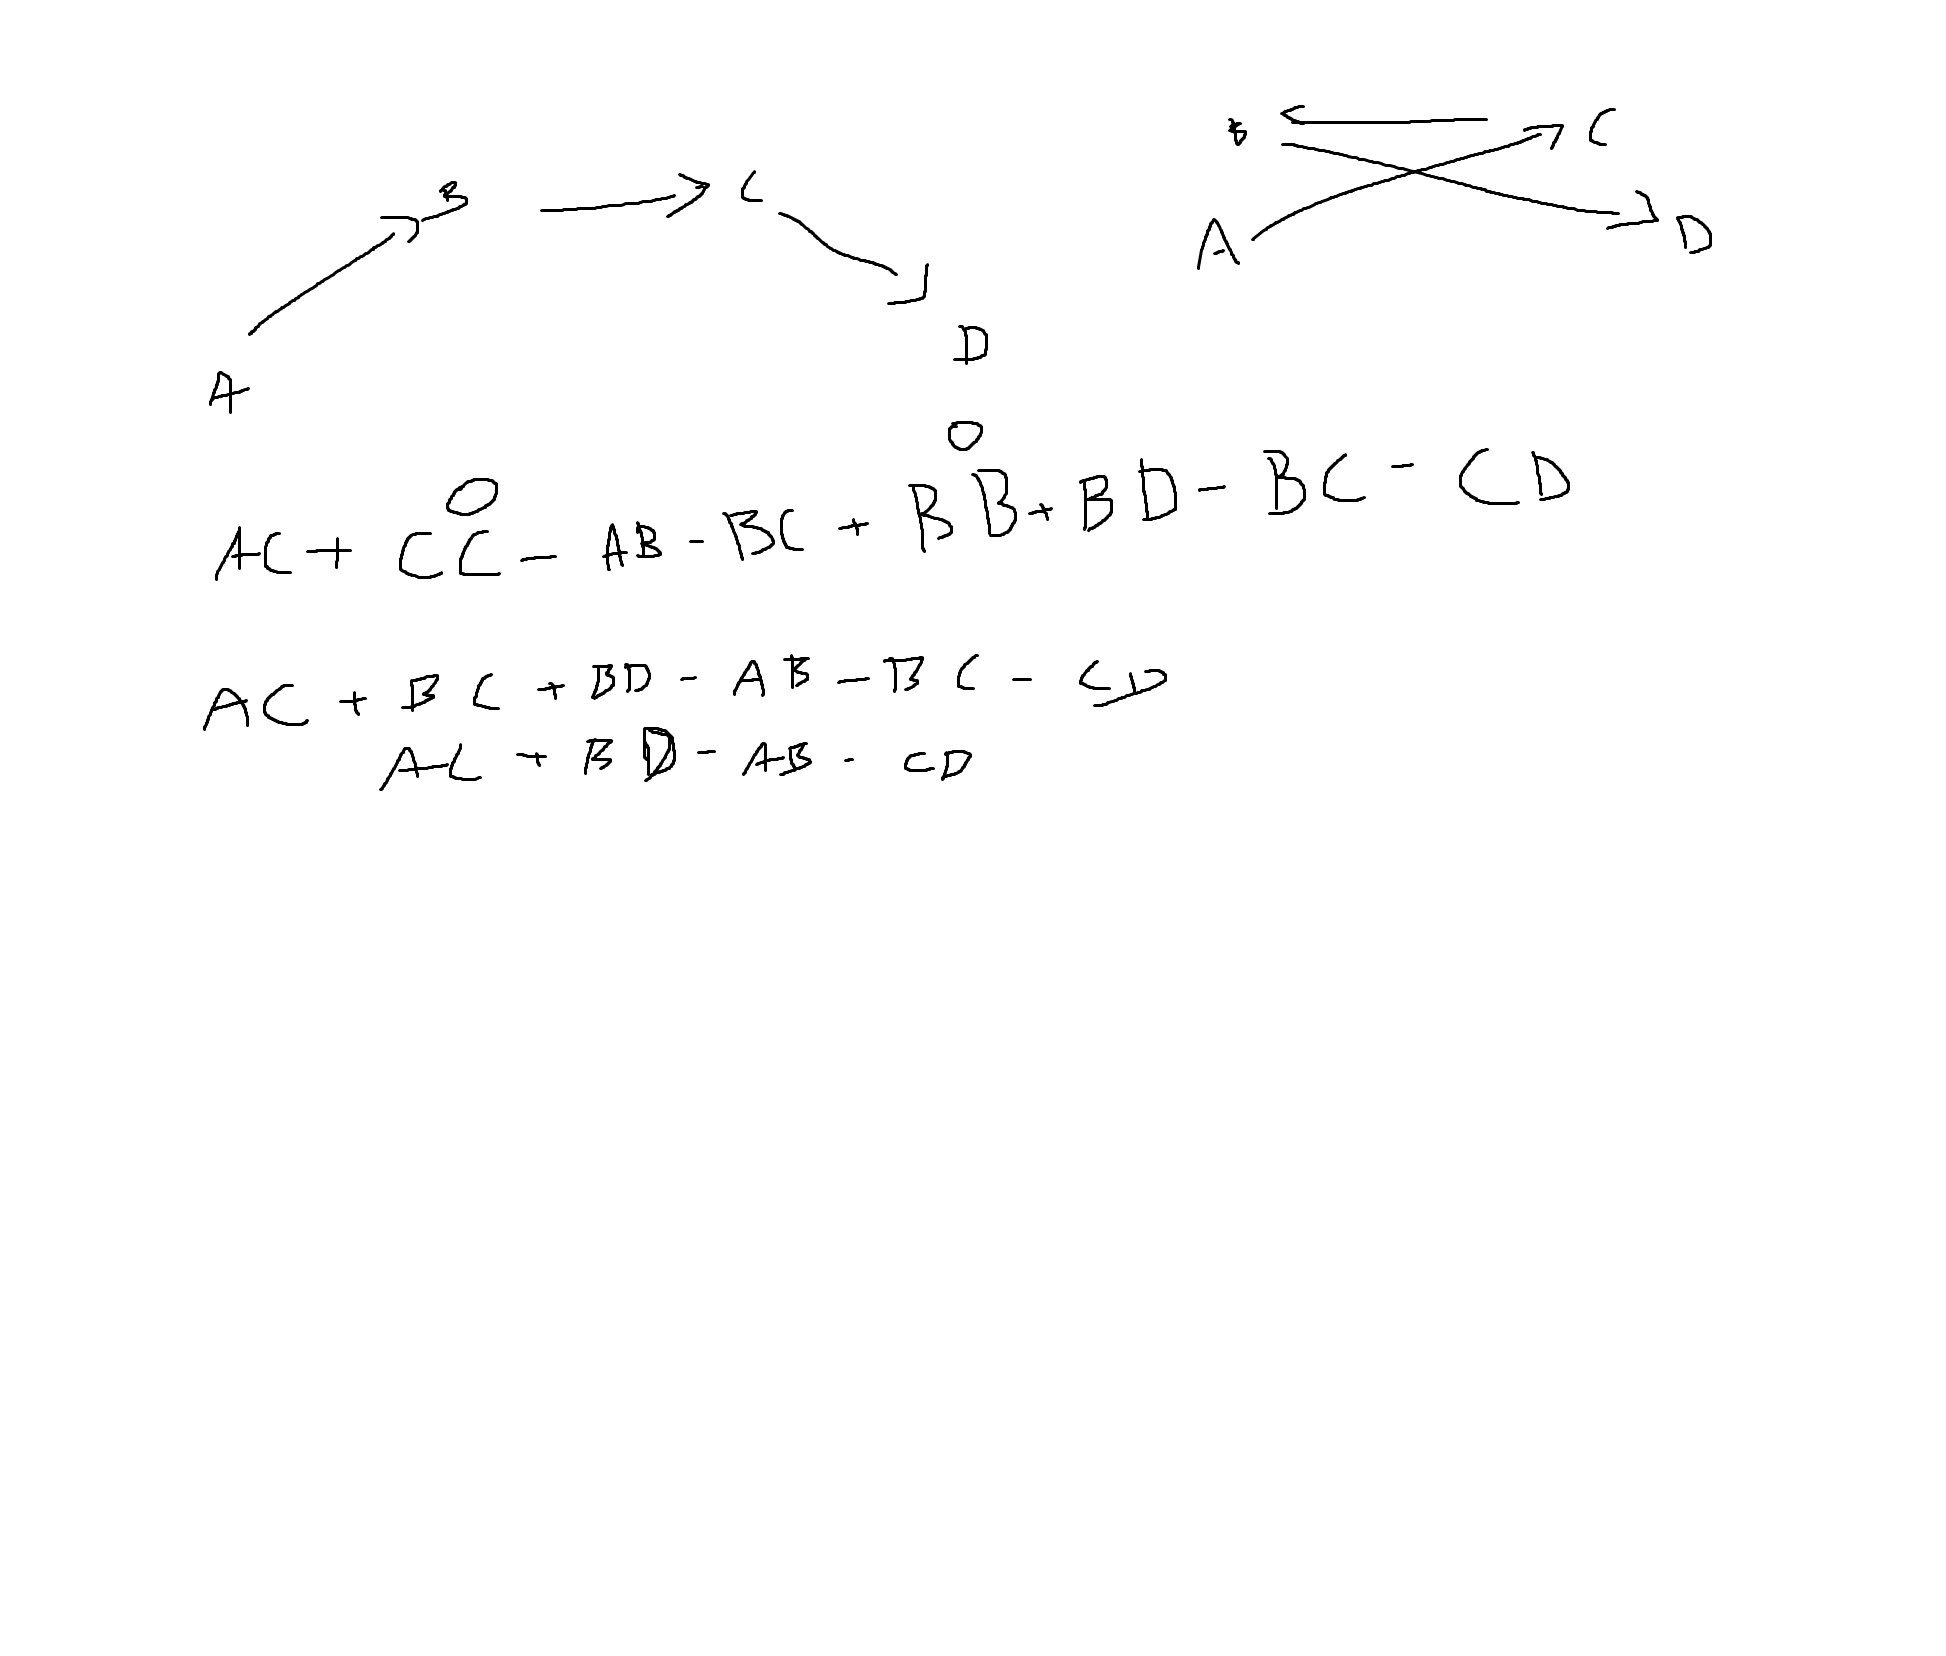 B → C
A → B → C → D
A → C → B → D
O
O
AC + CC - AB - BC + BB + BD - BC - CD
AC + BC + BD - AB - BC - CD
AC + BD - AB - CD